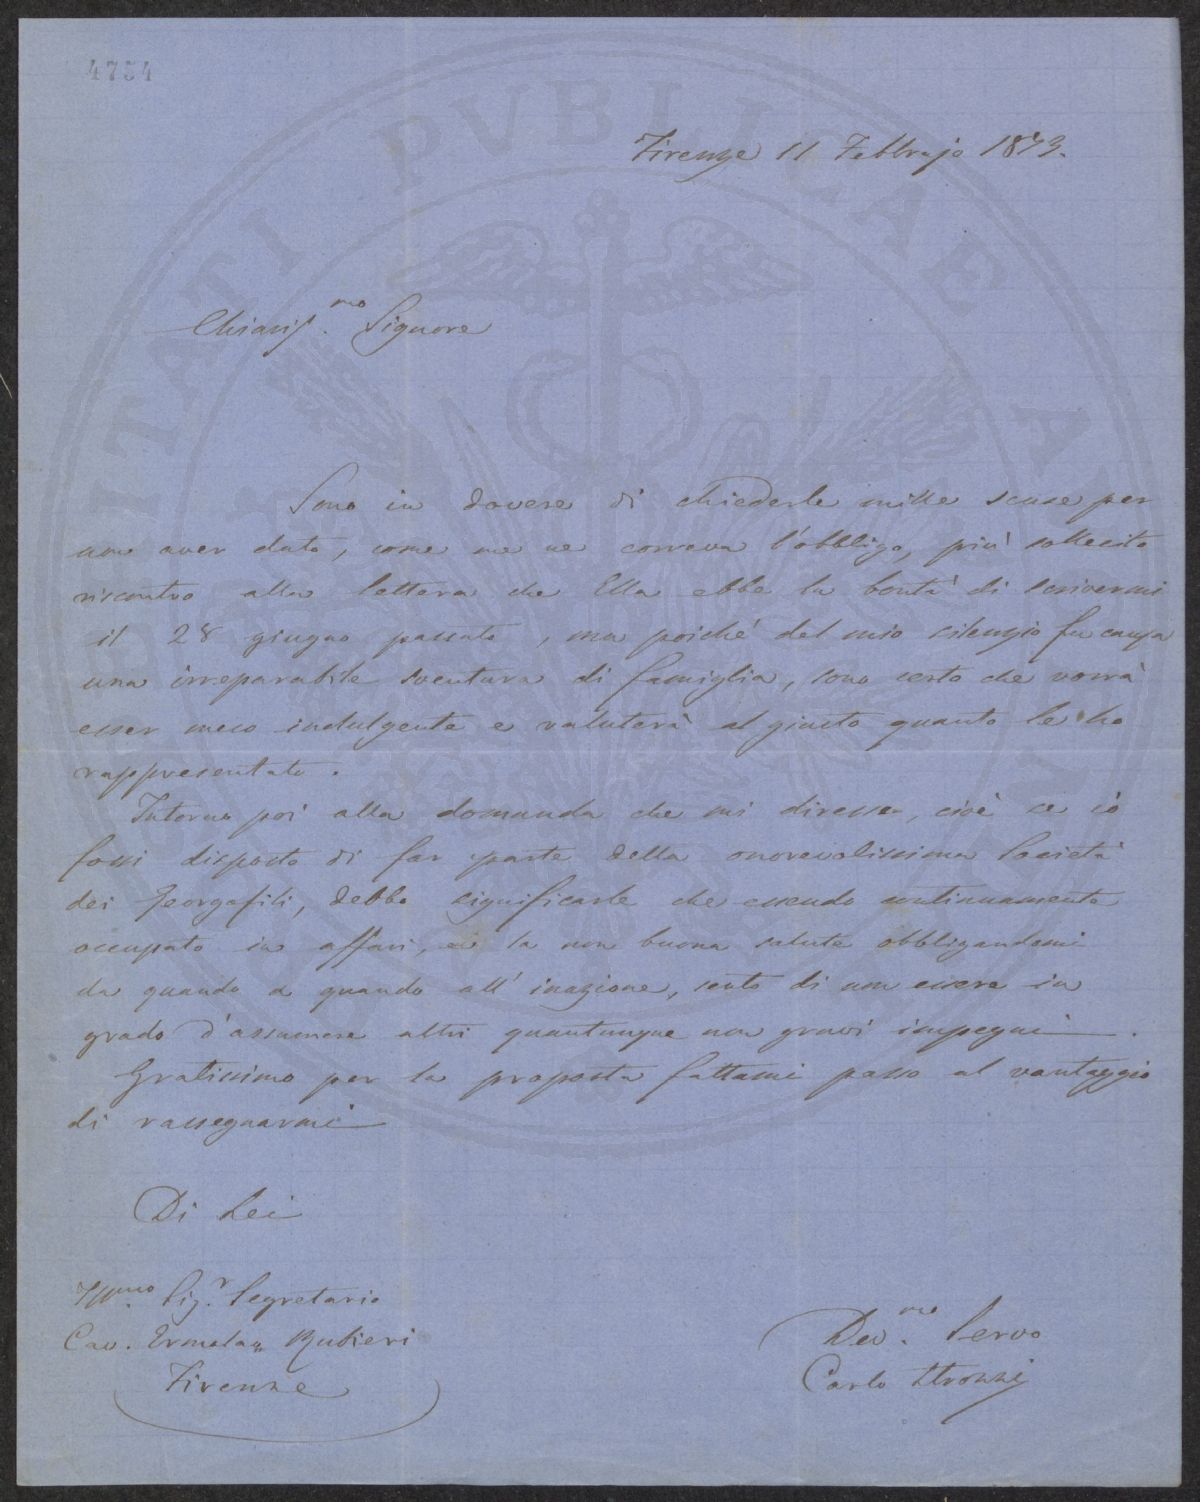 4754
PROSPERITATI PUBLICAE AUGENDAE
Firenze 11 Febbrajo 1873.
Chiariss.mo Signore
Sono in dovere di chiederle mille scuse per
non aver dato, come me ne correva l'obbligo, più sollecito
riscontro alla lettera che Ella ebbe la bontà di scrivermi
il 28 giugno passato, ma poiché del mio silenzio fu causa
una irreparabile sventura di famiglia, sono certo che vorrà
esser meco indulgente e valuterà al giusto quanto le ho
rappresentato.
Intorno poi alla domanda che mi diresse, cioè se io
fossi disposto di far parte della onorevolissima Società
dei Georgofili, debbo significarle che essendo continuamente
occupato in affari, e la non buona salute obbligandomi
da quando a quando all'inazione, sento di non essere in
grado d'assumere altri quantunque non gravi impegni.
Gratissimo per la proposta fattami passo al vantaggio
di rassegnarmi
Di Lei
Ill.mo Sig.r Segretario
Cav. Ermolao Rubieri
Firenze
Dev.mo Servo
Carlo Strozzi